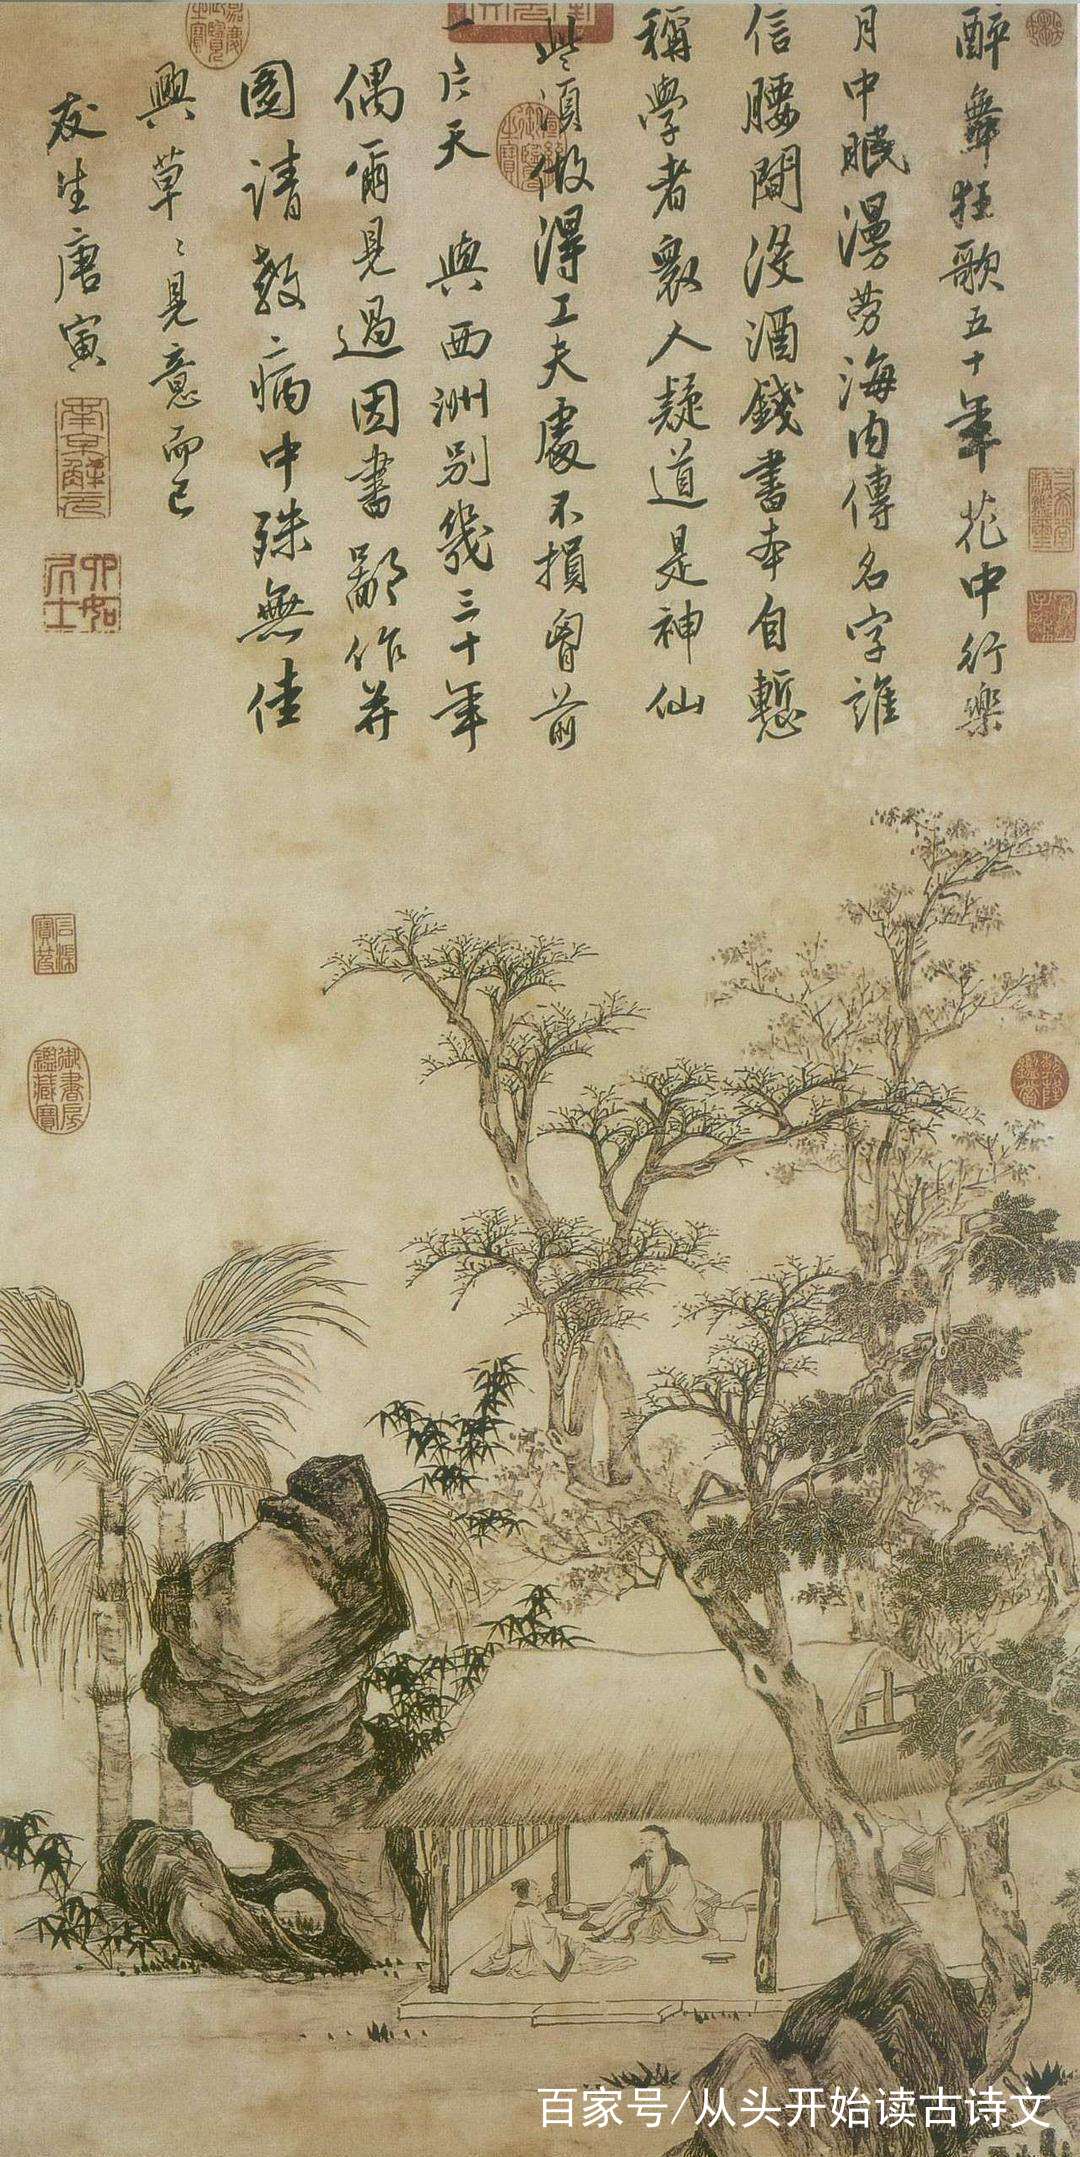 醉舞狂歌五十年花中行樂
月中眠漫勞海内傳名字誰
信腰間沒酒錢書本自慙
稱學者衆人疑道是神仙
些須做得工夫處不損胷前
一片天 與西洲別幾三十年
偶爾見過因書鄙作并
圖請教病中殊無佳
興草〻見意而已
友生唐寅
南京解元
六如居士
石渠寶笈
御書房鑑藏寶
百家号/从头开始读古诗文